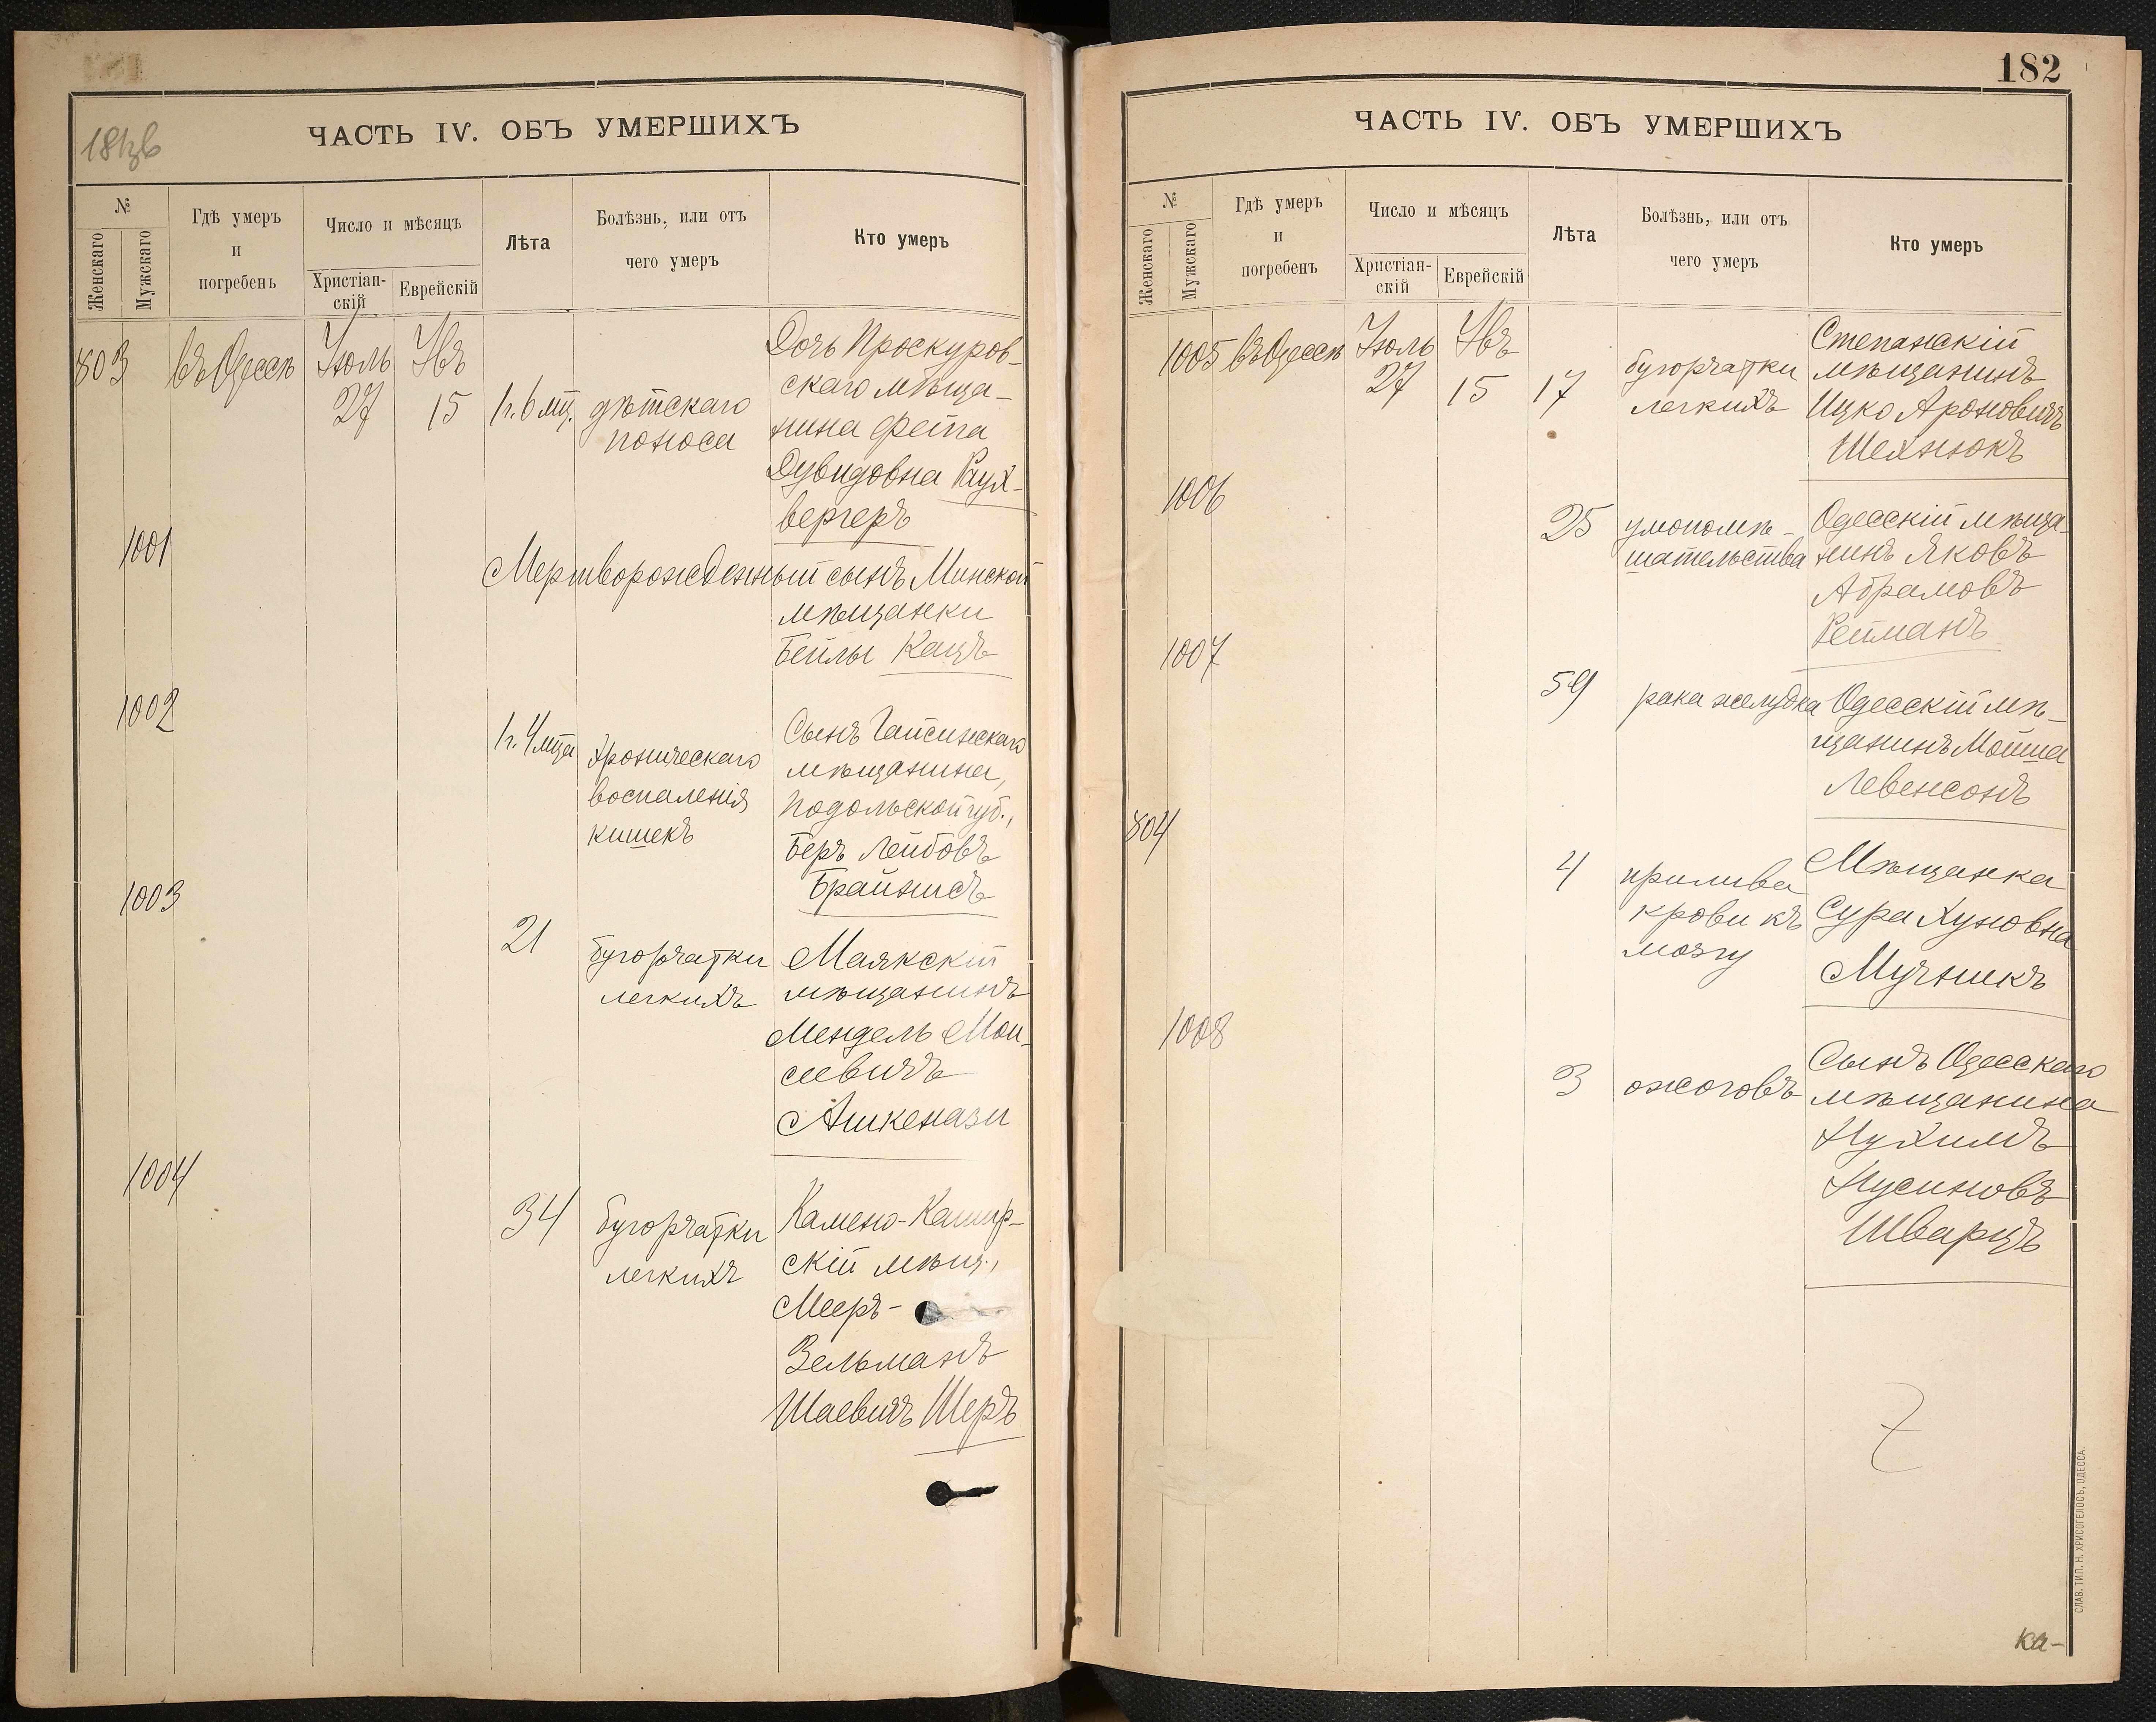 181зв
ЧАСТЬ IV. ОБЪ УМЕРШИХЪ
№
Женскаго
Мужскаго
Гдѣ умеръ
и
погребенъ
Число и мѣсяцъ
Христіан-
скій
Еврейскій
Лѣта
Болѣзнь, или отъ
чего умеръ
Кто умеръ
803
въ Одессѣ
Іюль
27
Увъ
15
1 г. 6 мц.
дѣтскаго
поноса
Дочь Проскуров-
скаго мѣща-
нина Фейга
Дувидовна Раух-
вергеръ
1001
Мертворожденный сынъ Минской
мѣщанки
Бейлы Кацъ
1002
1 г. 4 мца
хроническаго
воспаленія
кишекъ
Сынъ Гайсинскаго
мѣщанина,
Подольской губ.,
Беръ Лейбовъ
Брайнисъ
1003
21
бугорчатки
легкихъ
Маякскій
мѣщанинъ
Мендель Мои-
сеевичъ
Ашкенази
1004
34
бугорчатки
легкихъ
Камено-Кашир-
скій мѣщ.,
Мееръ-
Зельманъ
Шаевичъ Шеръ
182
ЧАСТЬ IV. ОБЪ УМЕРШИХЪ
№
Женскаго
Мужскаго
Гдѣ умеръ
и
погребенъ
Число и мѣсяцъ
Христіан-
скій
Еврейскій
Лѣта
Болѣзнь, или отъ
чего умеръ
Кто умеръ
1005
въ Одессѣ
Іюль
27
Увъ
15
17
бугорчатки
легкихъ
Степанскій
мѣщанинъ
Ицко Ароновичъ
Шехнюкъ
1006
25
умопомѣ-
шательства
Одесскій мѣща-
нинъ Яковъ
Абрамовъ
Рейманъ
1007
59
рака желудка
Одесскій мѣ-
щанинъ Мойша
Левенсонъ
804
4
прилива
крови къ
мозгу
Мѣщанка
Сура Хуновна
Мучникъ
1008
3
ожоговъ
Сынъ Одесскаго
мѣщанина
Нухимъ
Нусиновъ
Шварцъ
ка-
СЛАВ. ТИП. Н. ХРИСОГЕЛОСЪ, ОДЕССА.